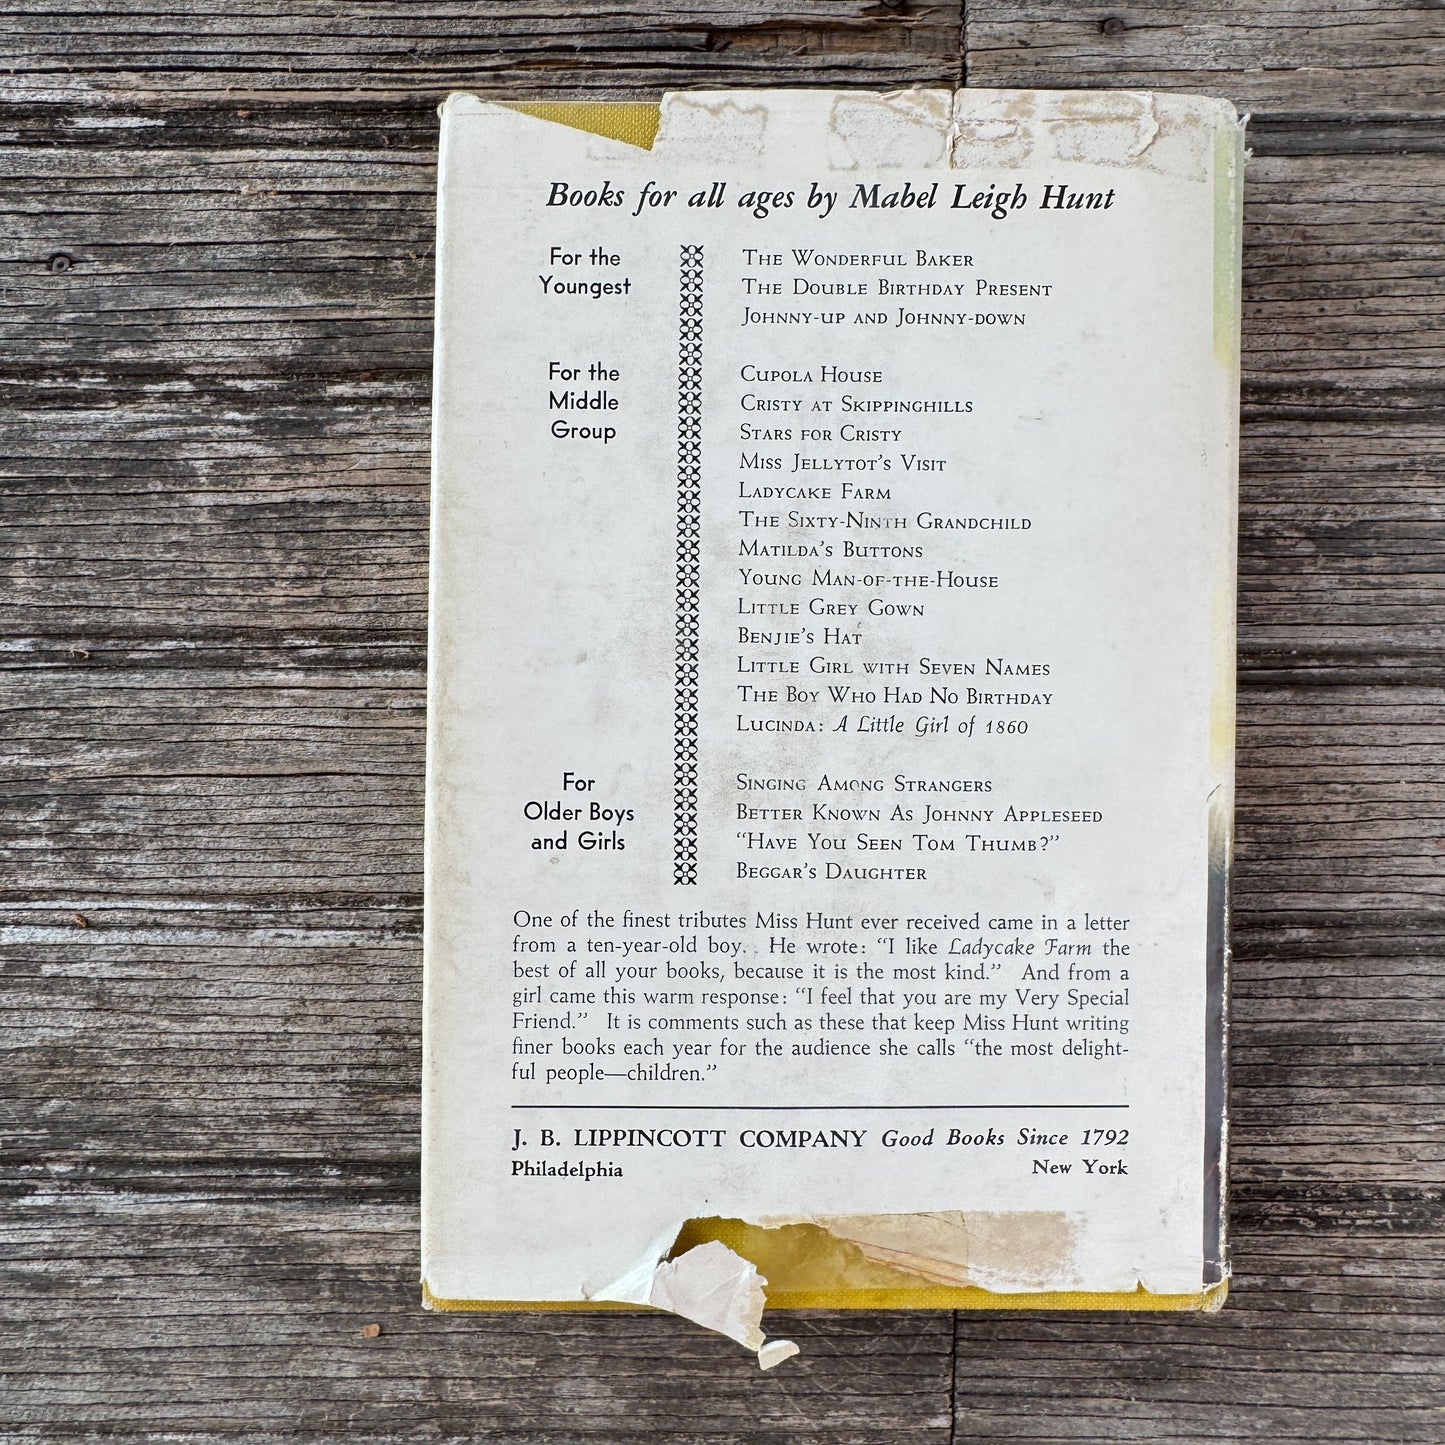 Books for all ages by Mabel Leigh Hunt
For the
Youngest
The Wonderful Baker
The Double Birthday Present
Johnny-up and Johnny-down
For the
Middle
Group
Cupola House
Cristy at Skippinghills
Stars for Cristy
Miss Jellytot's Visit
Ladycake Farm
The Sixty-Ninth Grandchild
Matilda's Buttons
Young Man-of-the-House
Little Grey Gown
Benjie's Hat
Little Girl with Seven Names
The Boy Who Had No Birthday
Lucinda: A Little Girl of 1860
For
Older Boys
and Girls
Singing Among Strangers
Better Known As Johnny Appleseed
“Have You Seen Tom Thumb?”
Beggar's Daughter
One of the finest tributes Miss Hunt ever received came in a letter
from a ten-year-old boy. He wrote: “I like Ladycake Farm the
best of all your books, because it is the most kind.” And from a
girl came this warm response: “I feel that you are my Very Special
Friend.” It is comments such as these that keep Miss Hunt writing
finer books each year for the audience she calls “the most delight-
ful people—children.”
J. B. LIPPINCOTT COMPANY Good Books Since 1792
Philadelphia New York